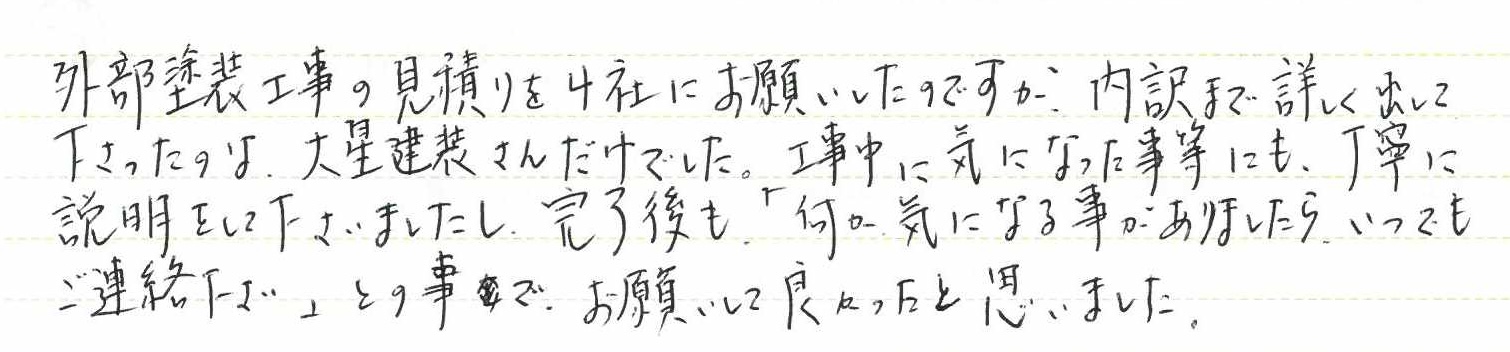 外部塗装工事の見積りを4社にお願いしたのですが、内訳まで詳しく出して
下さったのは、大星建装さんだけでした。工事中に気になった事等にも、丁寧に
説明をして下さいましたし、完了後も、「何か気になる事がありましたら、いつでも
ご連絡下さい」との事で、お願いして良かったと思いました。